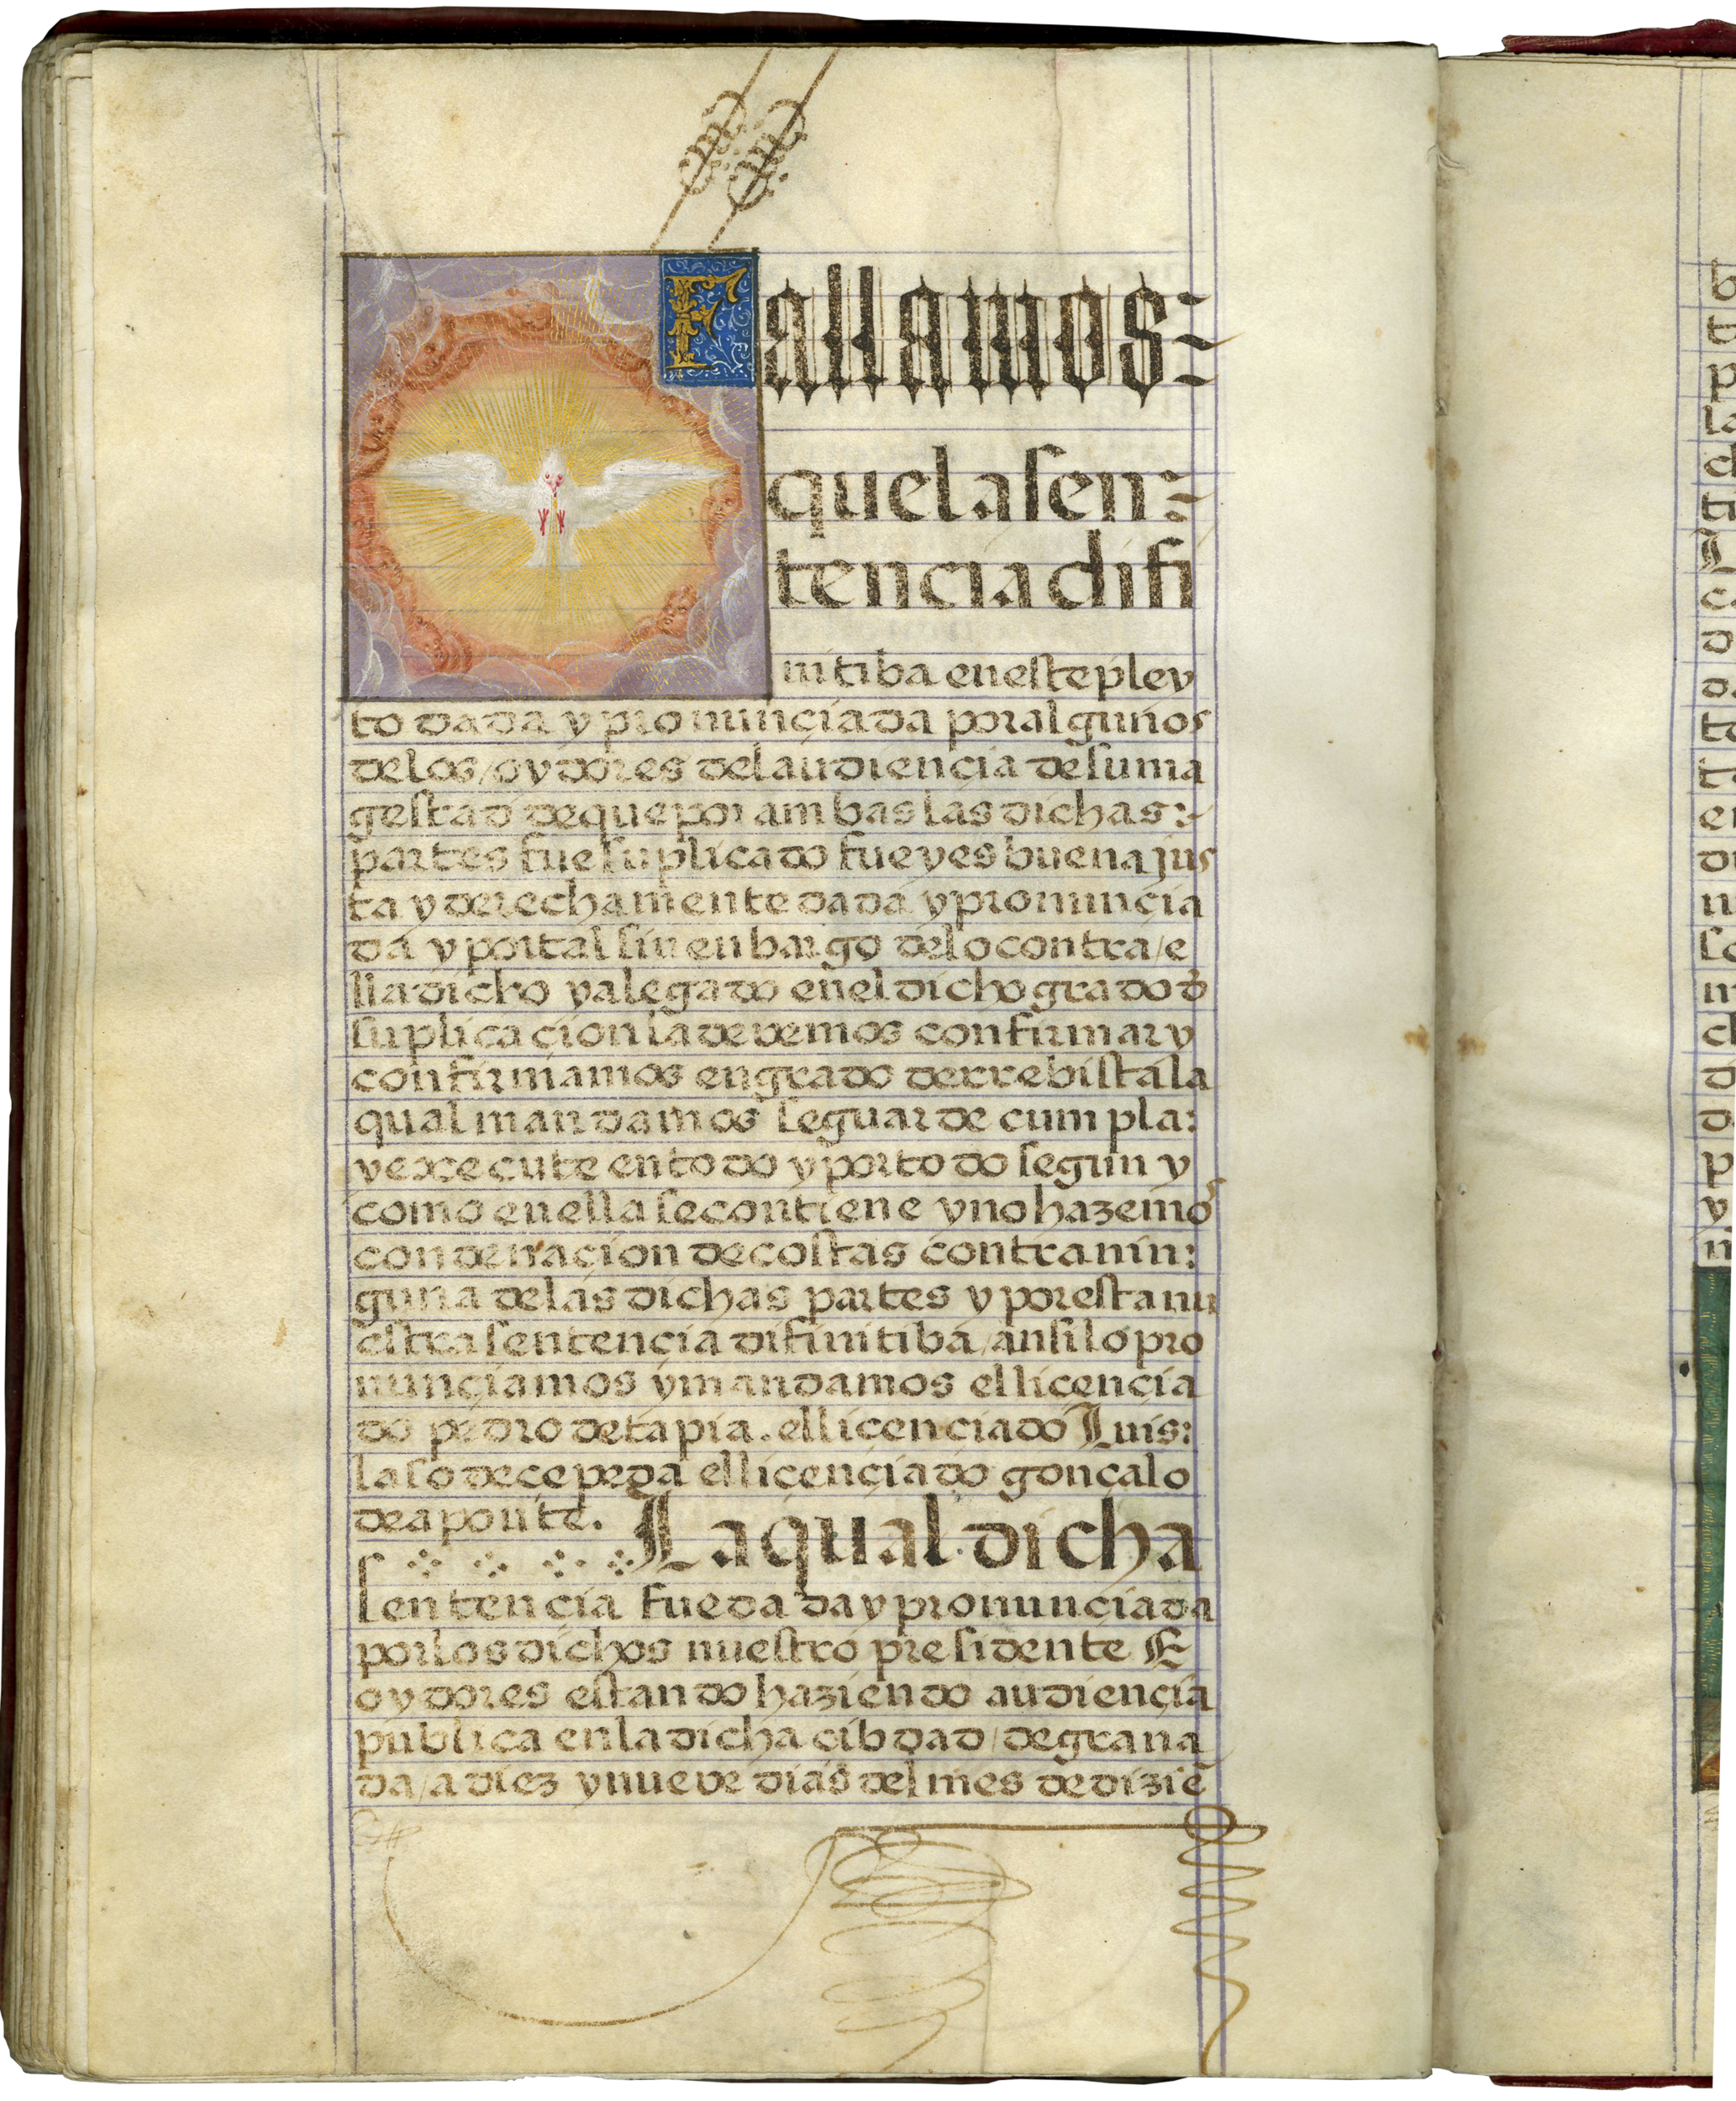 Fallamos:
que la sen:
tencia difi
nitiba en este pley
to dada y pronunciada por algunos
de los / oydores del audiencia de su ma
gestad de que por ambas las dichas:
partes fue suplicado fue y es buena jus
ta y derechamente dada y pronuncia
da y por tal sin enbargo de lo contra / e
lla dicho y alegado en el dicho grado đ
suplicaçion la devemos confirmar y
confirmamos en grado de rrebista la
qual mandamos se guarde cumpla:
y execute en todo y por todo segun y
como en ella se contiene y no hazemos
condenaçion de costas contra nin:
guna de las dichas partes y por esta nu
estra sentençia difinitiba / ansi lo pro
nunçiamos y mandamos el liçençia
do pedro de tapia. el liçençiado Luis:
laso de çepeda el liçençiado gonçalo
de aponte. La qual dicha
sentençia fue dada y pronunciada
por los dichos nuestro presidente E
oydores estando haziendo audiençia
publica en la dicha çibdad / de grana
da / a diez y nueve dias del mes de diziẽ